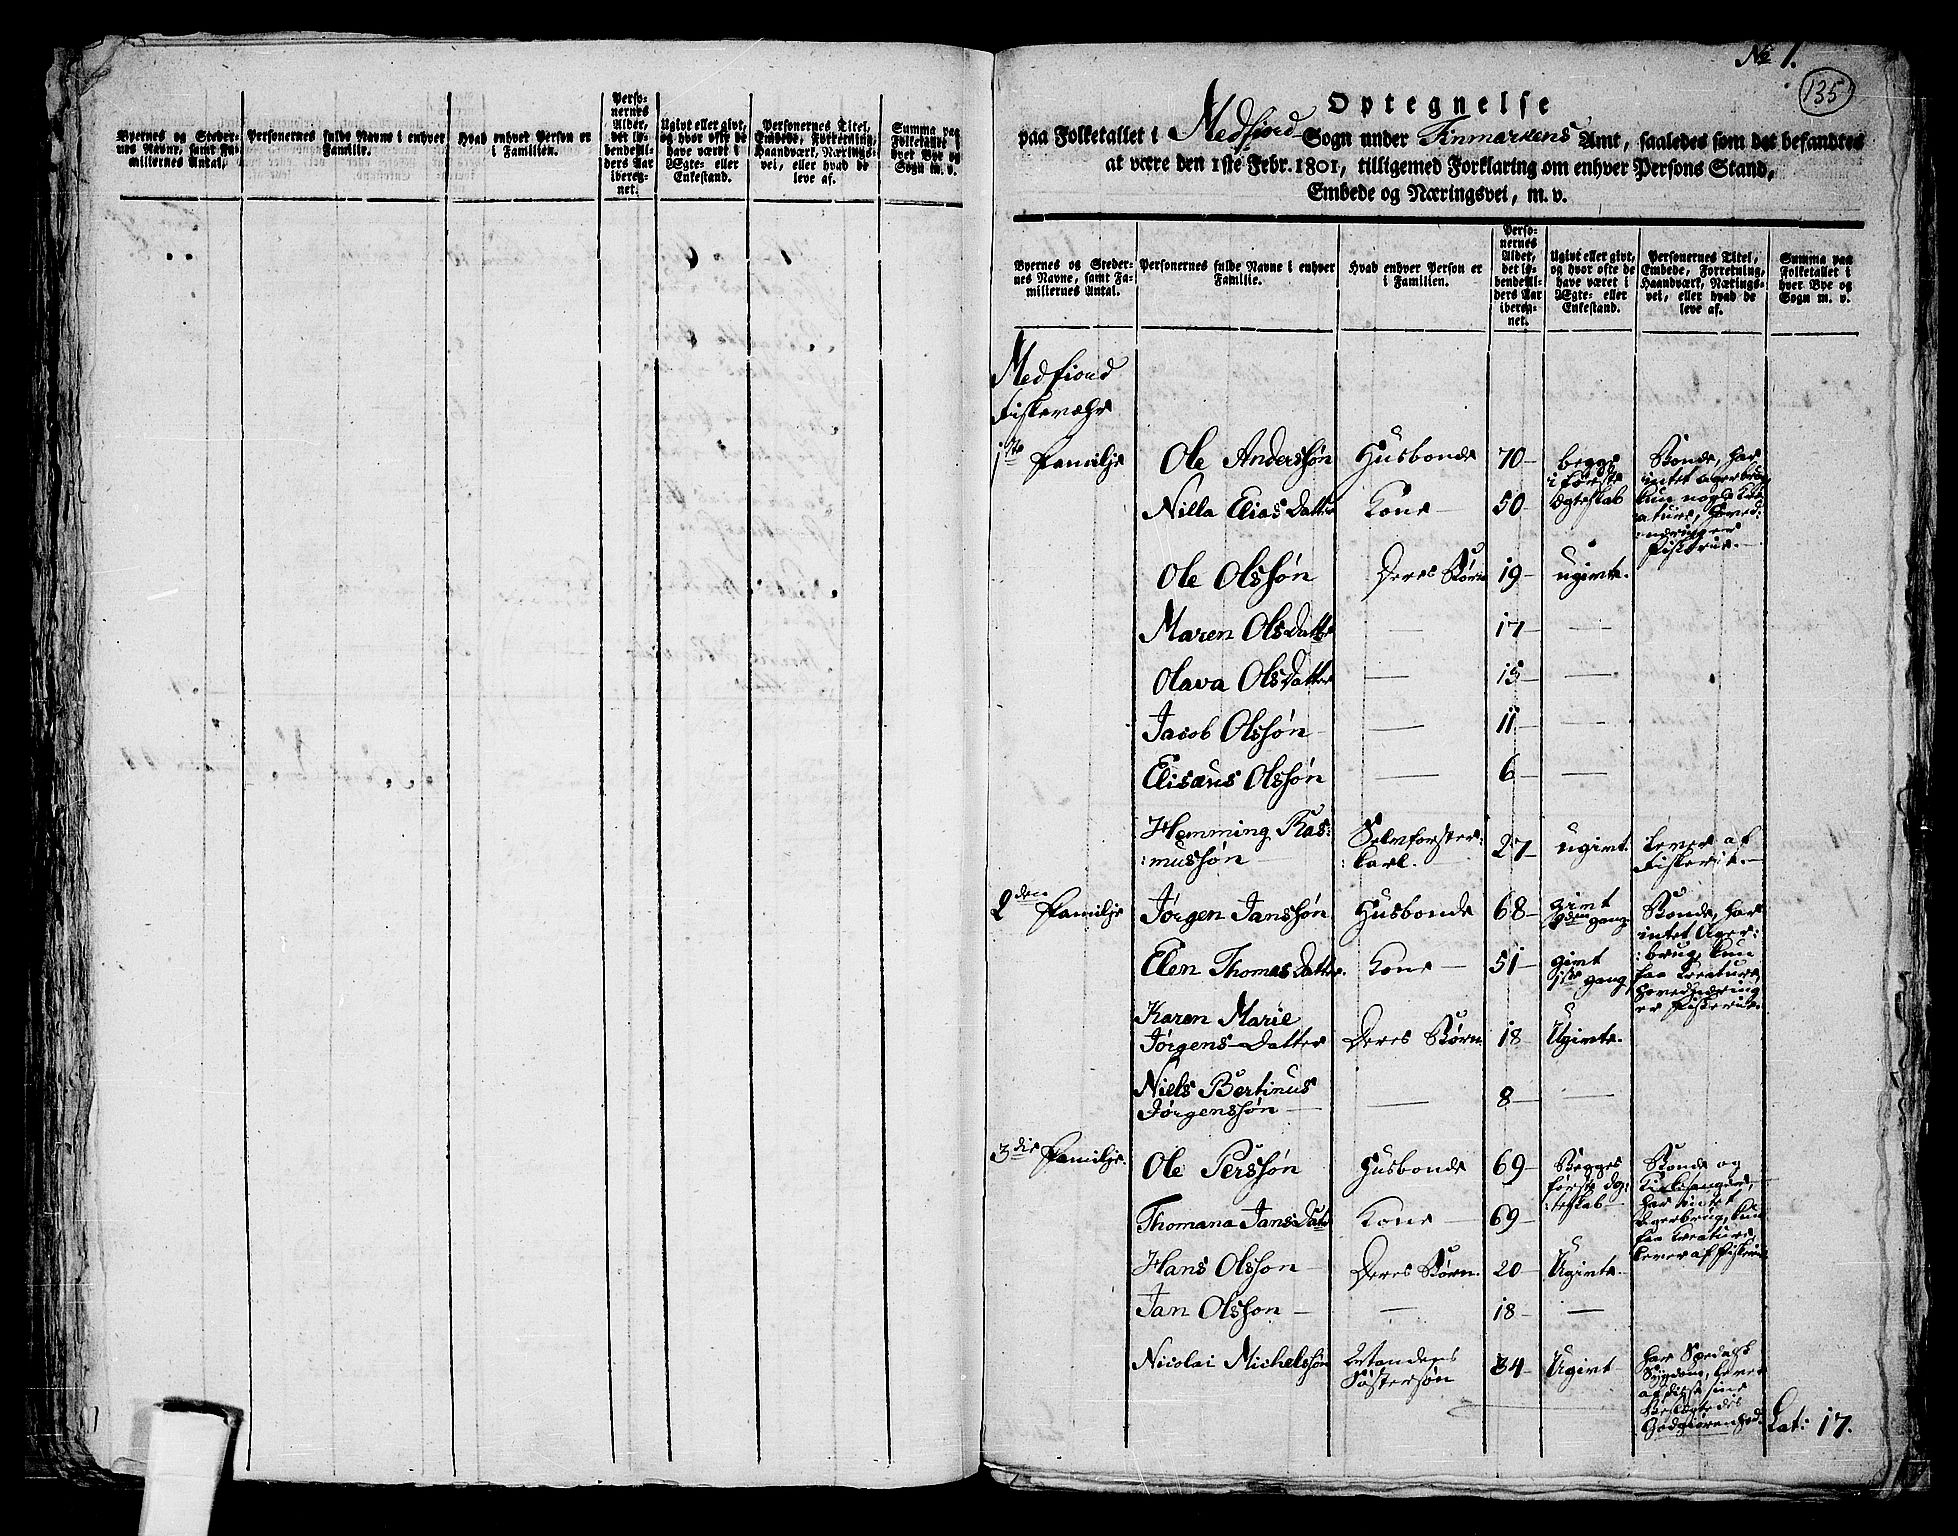 Byernes og Steder-
nes Navne, samt Fa-
miliernes Antal.
Personernes fulde Navne i enhver
Familie.
Hvad enhver Person er
i Familien.
Perso-
nernes
Alder,
det lø-
bende Al-
ders Aar
ibereg-
net.
Ugivt eller givt,
og hvor ofte de
have været i
Ægte- eller
Enkestand.
Personernes Titel,
Embede, Forretning,
Haandværk, Nærings-
vei, eller hvad de
leve af.
Summa paa
Folketallet i
hver Bye og
Sogn m. v.
No 1.
135
Optegnelse
paa Folketallet i Medfiord Sogn under Finmarkens Amt, saaledes som det befandtes
at være den 1ste Febr. 1801, tilligemed Forklaring om enhver Persons Stand,
Embede og Næringsvei, m. v.
Byernes og Steder-
nes Navne, samt Fa-
miliernes Antal.
Personernes fulde Navne i enhver
Familie.
Hvad enhver Person er
i Familien.
Perso-
nernes
Alder,
det lø-
bende Al-
ders Aar
ibereg-
net.
Ugivt eller givt,
og hvor ofte de
have været i
Ægte- eller
Enkestand.
Personernes Titel,
Embede, Forretning,
Haandværk, Nærings-
vei, eller hvad de
leve af.
Summa paa
Folketallet i
hver Bye og
Sogn m. v.
Medfiord
Fiskevæhr
1ste Familje
Ole Anderssøn Husbonde 70
begge
i første
Ægteskab
Bonde, har
intet Agerbrug,
kun nogle Kre-
ature, Hoved-
næring er
Fiskerie.
Nilla Elias Datter Kone 50
Ole Olssøn Deres Børn 19 ugivte.
Maren Olsdatter — 17 —
Olava Olsdatter — 15 —
Jacob Olssøn — 11 —
Elisæus Olssøn — 6 —
Hemming Ras:
:mussøn
Selvforster:
:karl.
27 ugivt.
Lever af
Fiskerie.
2den Familje Jørgen Janssøn Husbonde 68
givt
2den gang.
Bonde, har
intet Ager:
:brug, kun
faa Kreature,
Hovednæring
er Fiskerie.
Elen Thomas Datter Kone 51
givt
1ste gang
Karen Marie
Jørgens Datter Deres Børn 18 Ugivte.
Niels Bertinus
Jørgenssøn — 8 —
3die Familje. Ole Perssøn Husbonde 69
Begges
første Æg:
:teskab
Bonde og
Kirkesanger,
har intet
Agerbrug, kun
faa Kreature,
lever af Fiskerie
Thomana Jans Datr Kone 69
Hans Olsson Deres Børn. 20 Ugivte.
Jan Olsson — 18 —
Nicolai Michelssøn
Søstersøn
34 Ugivt
har Spedalsk
Sygdom, lever
af disse sine
Beslægtedes
Godgiørenhed.
Lat: 17.